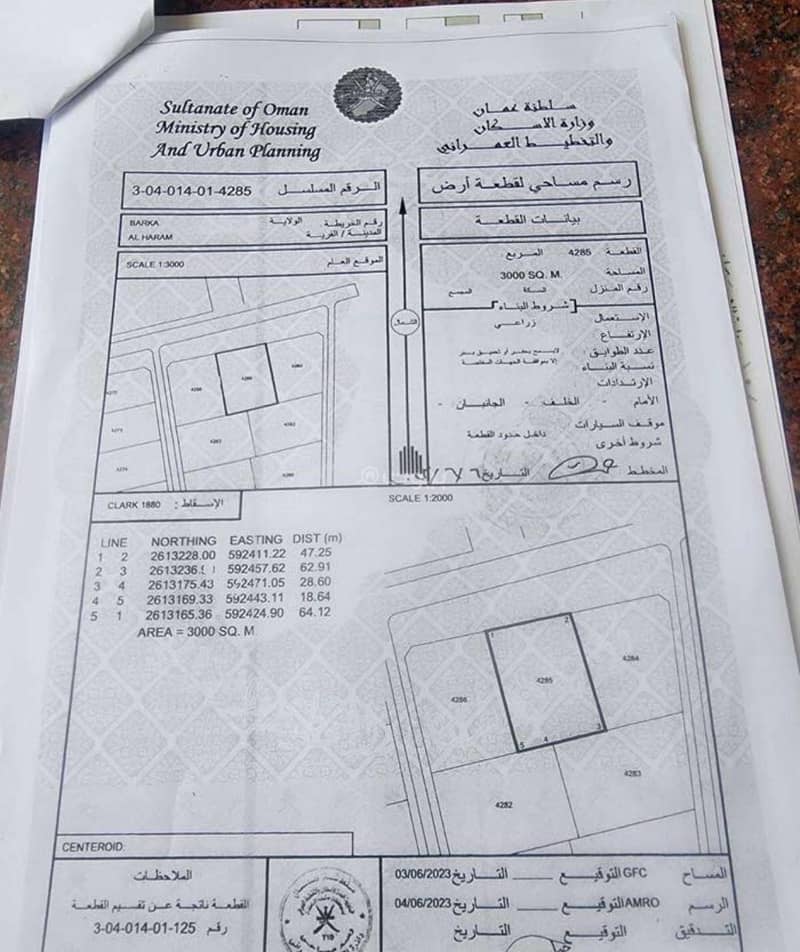 Sultanate of Oman
Ministry of Housing
And Urban Planning
سلطنة عمان
وزارة الاسكان
والتخطيط العمراني
3-04-014-01-4285 الرقم المسلسل
رسم مساحي لقطعة أرض
BARKA رقم الخريطة الولاية
AL HARAM المدينة / القرية
بيانات القطعة
SCALE 1:3000 الموقع العام
القطعة 4285 المربع
المساحة 3000 SQ. M.
رقم المنزل السكة المجمع
شروط البناء
الإستعمال زراعي
الإرتفاع
عدد الطوابق:
نسبة البناء
الإرتدادات
لايسمح بحفر أو تعميق بئر
إلا بموافقة الجهات المختصة
الأمام - الخلف - الجانبان -
موقف السيارات داخل حدود القطعة
شروط أخرى
المخطط التاريخ
الشمال
4286
4284
4282
CLARK 1880 الإسقاط:
SCALE 1:2000
LINE NORTHING EASTING DIST (m)
1 2 2613228.00 592411.22 47.25
2 3 2613236. 592457.62 62.91
3 4 2613175.43 592471.05 28.60
4 5 2613169.33 592443.11 18.64
5 1 2613165.36 592424.90 64.12
AREA = 3000 SQ. M
1
2
4284
4285
4286
3
4
5
4283
4282
CENTEROID:
الملاحظات
القطعة ناتجة عن تقسيم القطعة
رقم 3-04-014-01-125
المساح GFC التوقيع التاريخ 03/06/2023
الرسم AMRO التوقيع التاريخ 04/06/2023
التدقيق التوقيع التاريخ